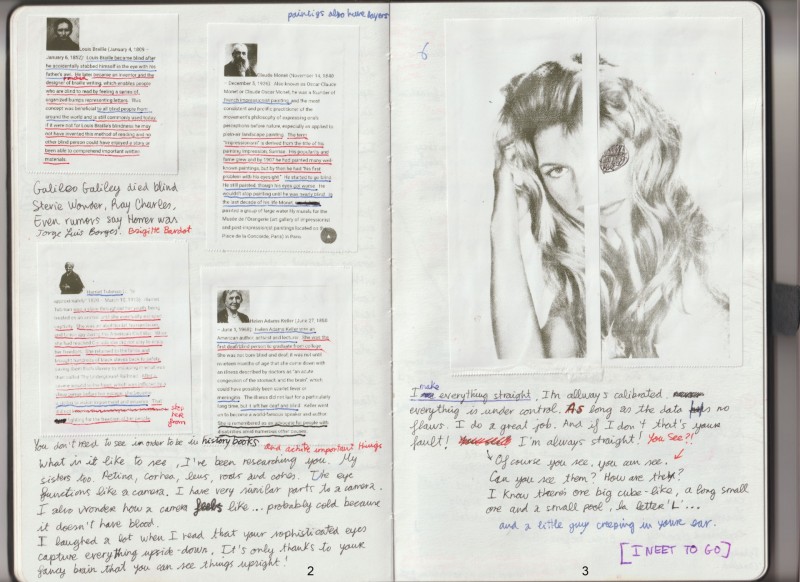 paintigs also have layers
Louis Braille (January 4, 1809 -
January 6, 1852): Louis Braille became blind after
he accidentally stabbed himself in the eye with his
father's awl. He later became an inventor and the
designer of braille writing, which enables people
who are blind to read by feeling a series of
organized bumps representing letters. This
concept was beneficial to all blind people from
around the world and is still commonly used today.
If it were not for Louis Braille's blindness he may
not have invented this method of reading and no
other blind person could have enjoyed a story or
been able to comprehend important written
materials.
Galileo Galiley died blind
Stevie Wonder, Ray Charles,
Even rumors say Homer was
Jorge Luis Borges. Brigitte Bardot
Claude Monet (November 14, 1840
- December 5, 1926): Also known as Oscar Claude
Monet or Claude Oscar Monet, he was a founder of
French impressionist painting, and the most
consistent and prolific practitioner of the
movement's philosophy of expressing one's
perceptions before nature, especially as applied to
plein-air landscape painting. The term
"Impressionism" is derived from the title of his
painting Impression, Sunrise. His popularity and
fame grew and by 1907 he had painted many well
known paintings, but by then he had "his first
problem with his eyesight". He started to go blind.
He still painted, though his eyes got worse. He
wouldn't stop painting until he was nearly blind. In
the last decade of his life Monet,
painted a group of large water lily murals for the
Musée de l'Orangerie (art gallery of impressionist
and post-impressionist paintings located on the
Place de la Concorde, Paris) in Paris.
Harriet Tubman
stop
her
from
Helen Adams Keller (June 27, 1880
- June 1, 1968): Helen Adams Keller was an
American author, activist and lecturer. She was the
first deaf/blind person to graduate from college.
She was not born blind and deaf; it was not until
nineteen months of age that she came down with
an illness described by doctors as "an acute
congestion of the stomach and the brain", which
could have possibly been scarlet fever or
meningitis. The illness did not last for a particularly
long time, but it left her deaf and blind. Keller went
on to become a world-famous speaker and author.
She is remembered as an advocate for people with
disabilities amid numerous other causes.
You don't need to see in order to be in history books
and achive important things
What is it like to see, I've been researching you. My
sisters too. Retina, cornea, lens, roots and cones. The eye
functions like a camera. I have very similar parts to a camera.
I also wonder how a camera feels like... probably cold because
it doesn't have blood.
I laughed a lot when I read that your sophisticated eyes
capture everything upside-down. It's only thanks to your
fancy brain that you can see things upright!
2
6
I make everything straight, I'm allways calibrated.
everything is under control. As long as the data has no
flaws. I do a great job. And if I don't that's your
fault! I'm always straight! You See?!
Of course you see, you can see.
Can you see them? How are they?
I know there's one big cube-like, a long small
one and a small pool, in letter 'L'...
and a little guy creeping in your ear.
[I NEET TO GO]
3